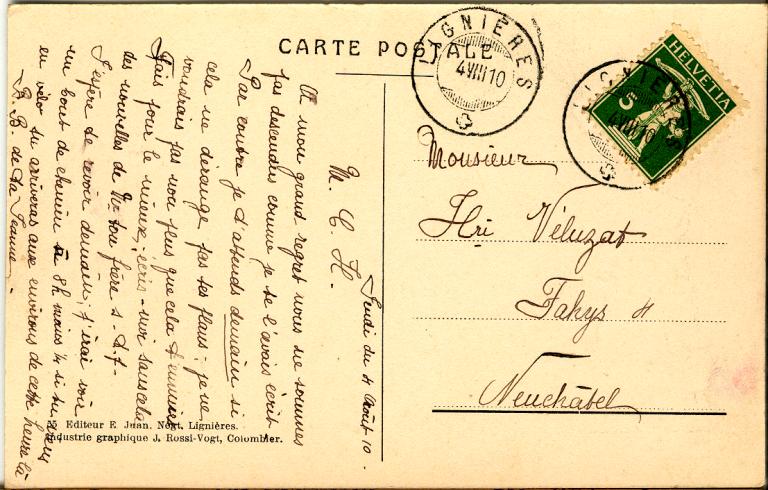 CARTE POSTALE
LIGNIÈRES
4 VIII 10
LIGNIÈRES
4 VIII 10
HELVETIA
5
Monsieur
Hri Véluzat
Fahys 4
Neuchâtel
Jeudi du 4 Août 10.
M. C. H.
A mon grand regret nous ne sommes
pas descendus comme je te l'avais écrit.
Par contre je t'attends demain si
cela ne dérange pas tes plans; je ne
voudrais pas non plus que cela t'ennuie
Mais pour le mieux, écris-moi sans cela
des nouvelles de ton frère s.t.p.
J'espère te revoir demain, j'irai voir
un bout de chemin à 8h moins ¼ si tu viens
en vélo tu arriveras aux environs de cette heure là
B. B. de ta Jeanne.
Editeur E. Juan. Négt, Lignières.
Industrie graphique J. Rossi-Vogt, Colombier.